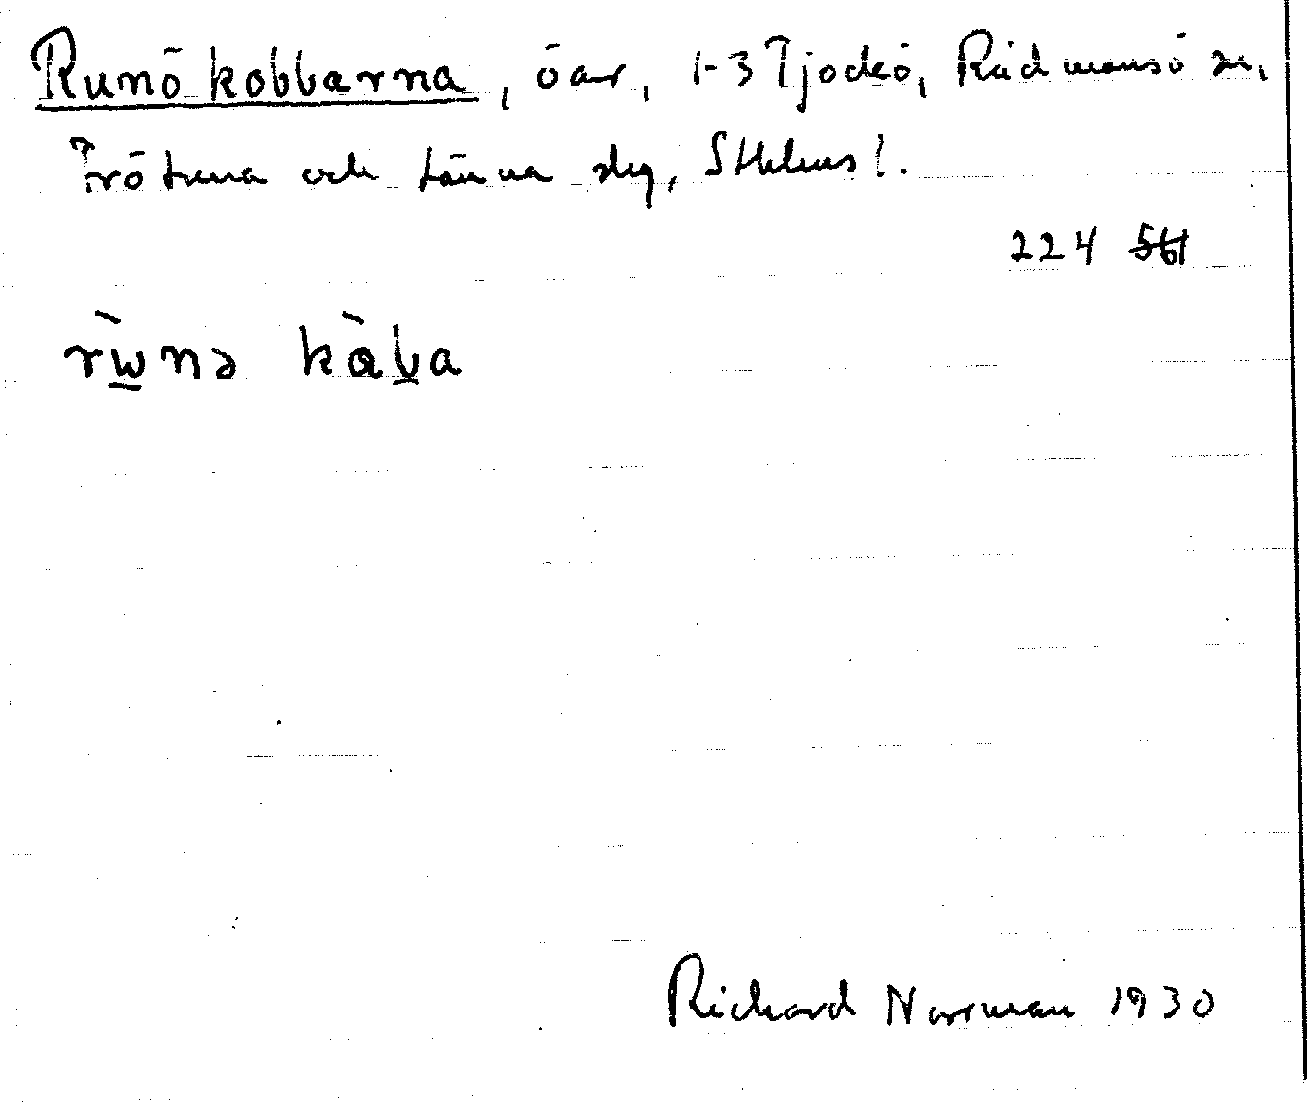 Runö kobbarna, öar, 1-3 Tjockö, Rådmansö sn,
Frötuna och Länna slg, Sthlms l.
224 561
rẁ̲nə kàb̲a
Richard Norrman 1930